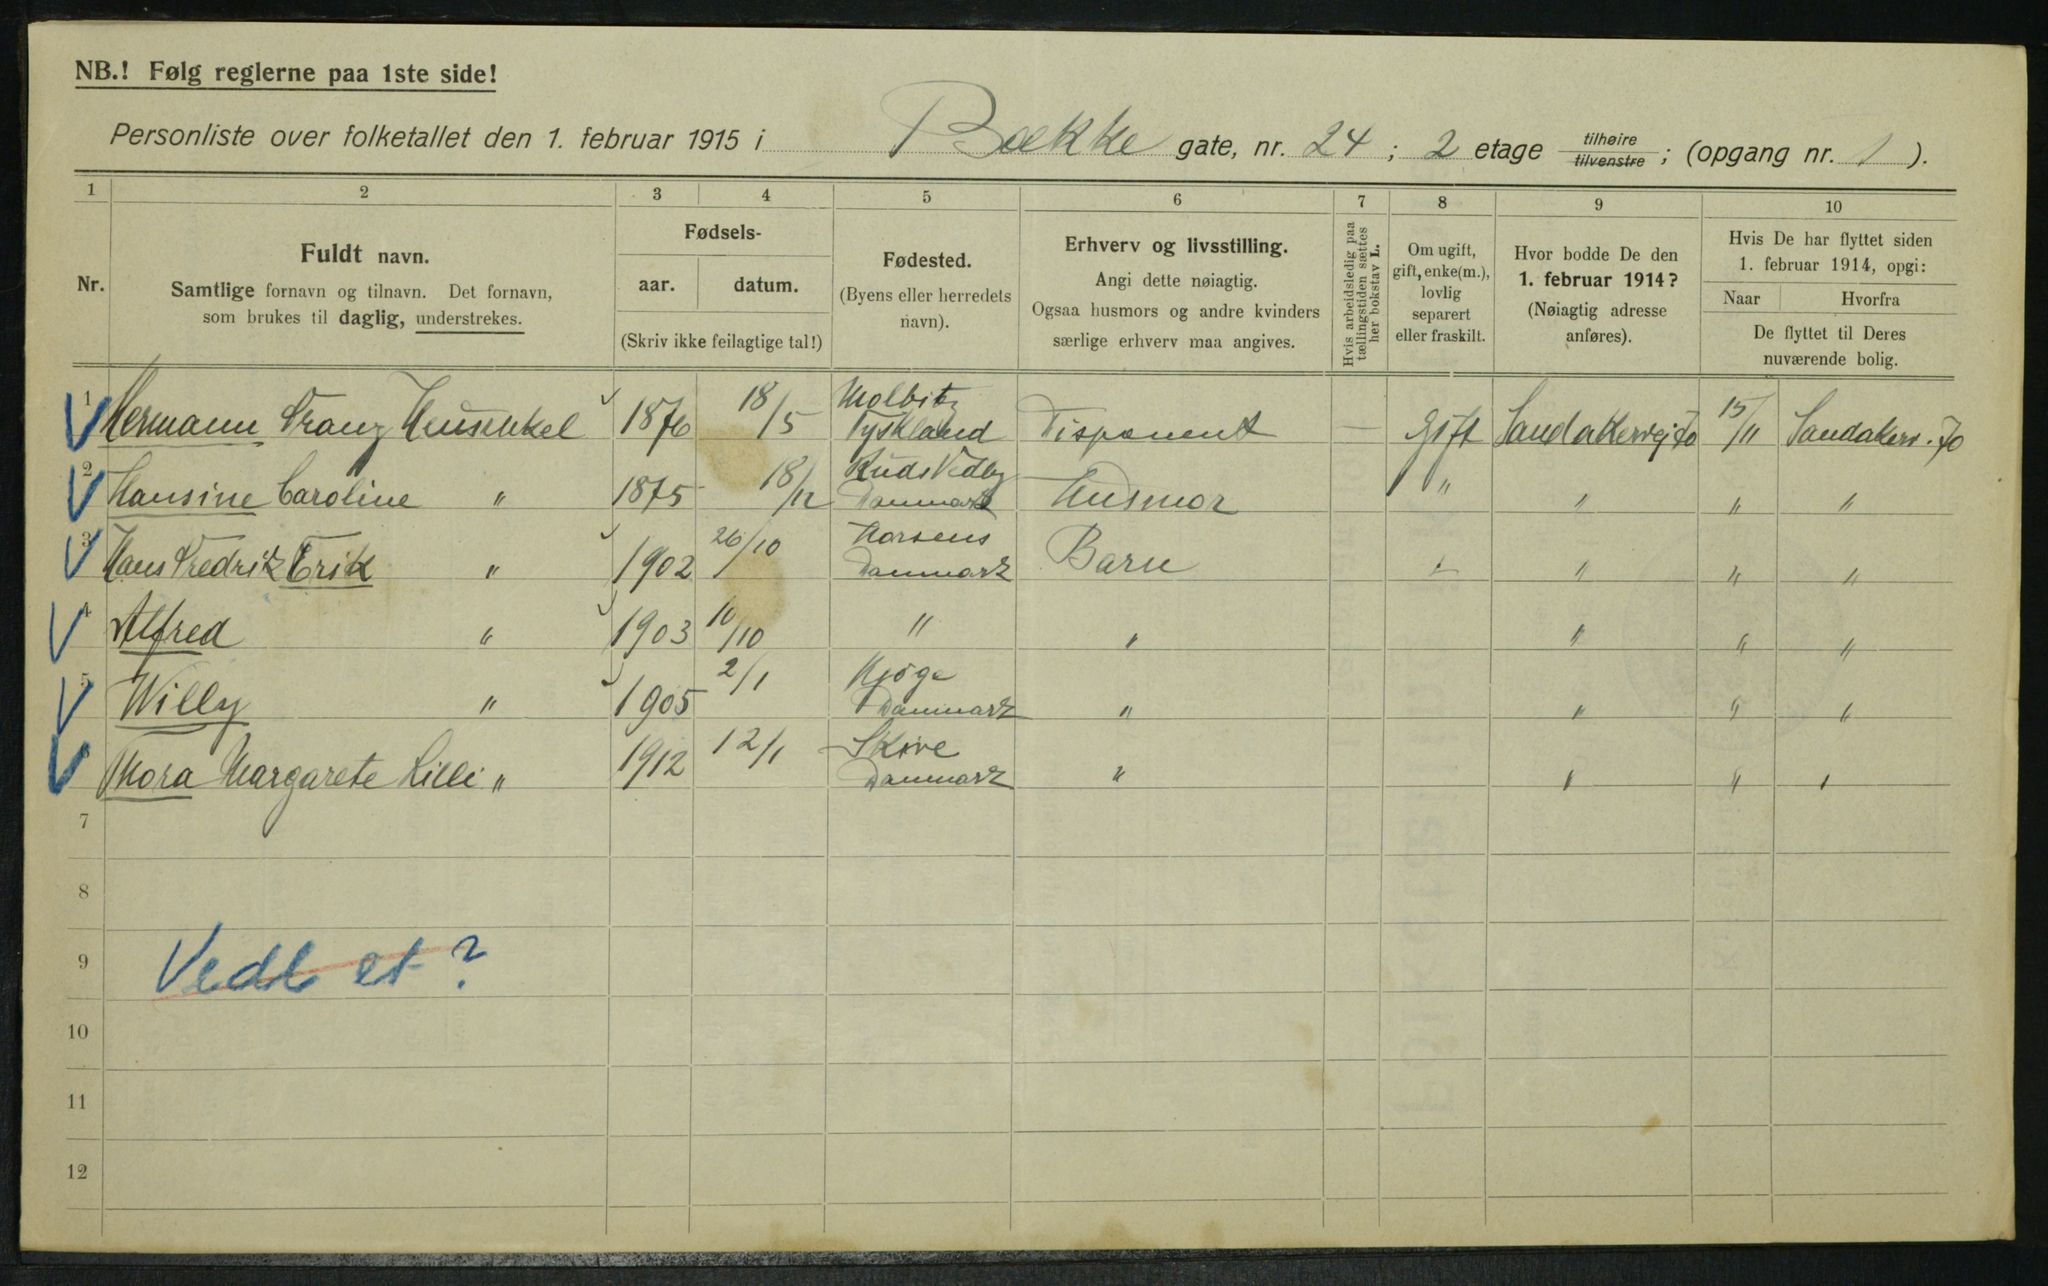 NB.! Følg reglerne paa 1ste side!
Personliste over folketallet den 1. februar 1915 i Bække gate, nr. 24 ; 2 etage tilhøire / tilvenstre ; (opgang nr. 1 ).
1 2 3 4 5 6 7 8 9 10
Nr.
Fuldt navn.
Samtlige fornavn og tilnavn. Det fornavn,
som brukes til daglig, understrekes.
Fødsels-
aar. datum.
(Skriv ikke feilagtige tal!)
Fødested.
(Byens eller herredets
navn).
Erhverv og livsstilling.
Angi dette nøiagtig.
Ogsaa husmors og andre kvinders
særlige erhverv maa angives.
Hvis arbeidsledig paa
tællingstiden sættes
her bokstav L.
Om ugift,
gift, enke(m.),
lovlig
separert
eller fraskilt.
Hvor bodde De den
1. februar 1914?
(Nøiagtig adresse
anføres).
Hvis De har flyttet siden
1. februar 1914, opgi:
Naar Hvorfra
De flyttet til Deres
nuværende bolig.
1 Hermann Franz Heuschkel 1876 18/5 Molbitz Tyskland Disponent — Gift Sandakervej 70 15/11 Sandakerv. 70
2 Hansine Caroline " 1875 18/12 Ruds Vedby Danmark Husmor " " " "
3 Hans Fredrik Erik " 1902 26/10 Horsens Danmark Barn - " " "
4 Alfred " 1903 10/10 " " " " "
5 Willy " 1905 2/1 Kjöge Danmark " " " "
6 Thora Margarete Lilli " 1912 12/1 Skive Danmark " " " "
7
8
9 Vedl et?
10
11
12